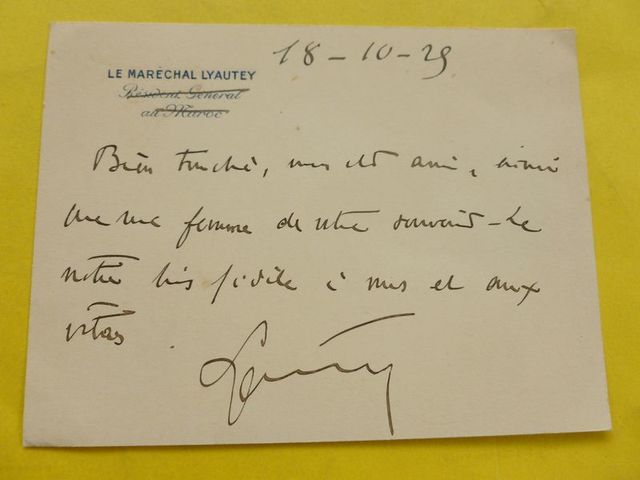 18-10-29
LE MARÉCHAL LYAUTEY
Résident Général
au Maroc
Bien touché, mon cher ami, ainsi
que ma femme de votre souvenir - Le
nôtre bien fidèle à vous et aux
vôtres
Lyautey